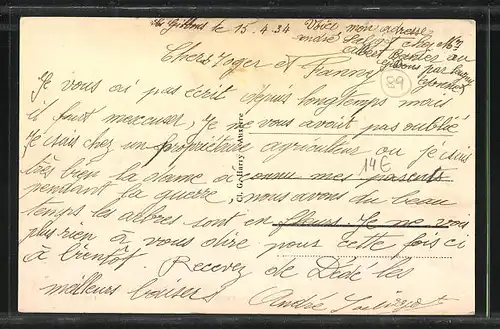 les Gibons le 15.4.34 Voici mon adresse
Chers Roger et Fanny
Je vous ai pas écrit depuis longtemps mais
il faut m'excuser, Je ne vous avait pas oublié
Je suis chez un propriétaire agriculteur ou je suis
très bien la dame a connu mes parents
pendant la guerre, nous avons du beau
temps les arbres sont en fleurs. Je ne vois
plus rien à vous dire pour cette fois ci
à bientôt. Recevez de Dédé les
meilleurs baisers André
89
14€
Cl. G. Harry Auxerre